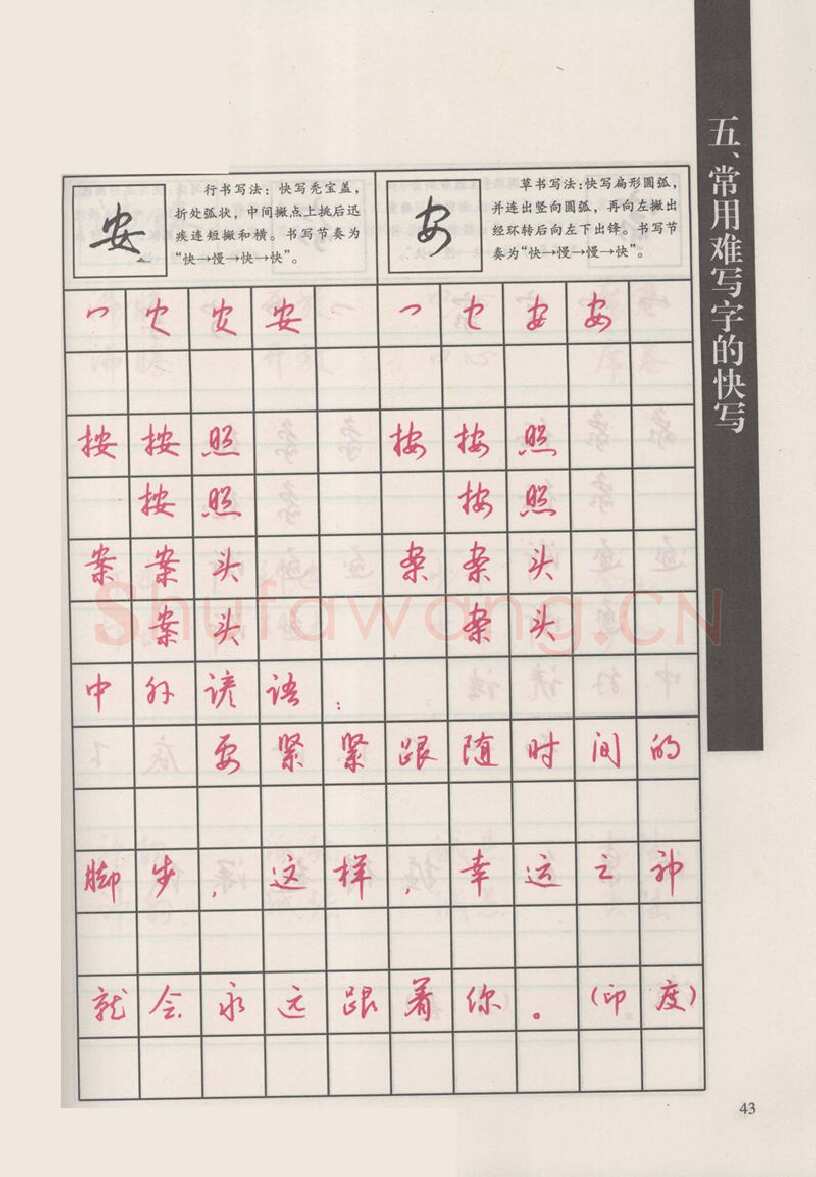 五、常用难写字的快写
安
行书写法：快写秃宝盖，
折处弧状，中间撇点上挑后迅
疾连短撇和横。书写节奏为
“快→慢→快→快”。
安
草书写法：快写扁形圆弧，
并连出竖向圆弧，再向左撇出
经环转后向左下出锋。书写节
奏为“快→慢→慢→快”。
安 安 安
按 按 照 按 按 照
按 照 按 照
案 案 头 案 案 头
案 头 案 头
中 外 谚 语 ：
要 紧 紧 跟 随 时 间 的
脚 步 ， 这 样 ， 幸 运 之 神
就 会 永 远 跟 着 你 。（印 度）
Shufawang.CN
43